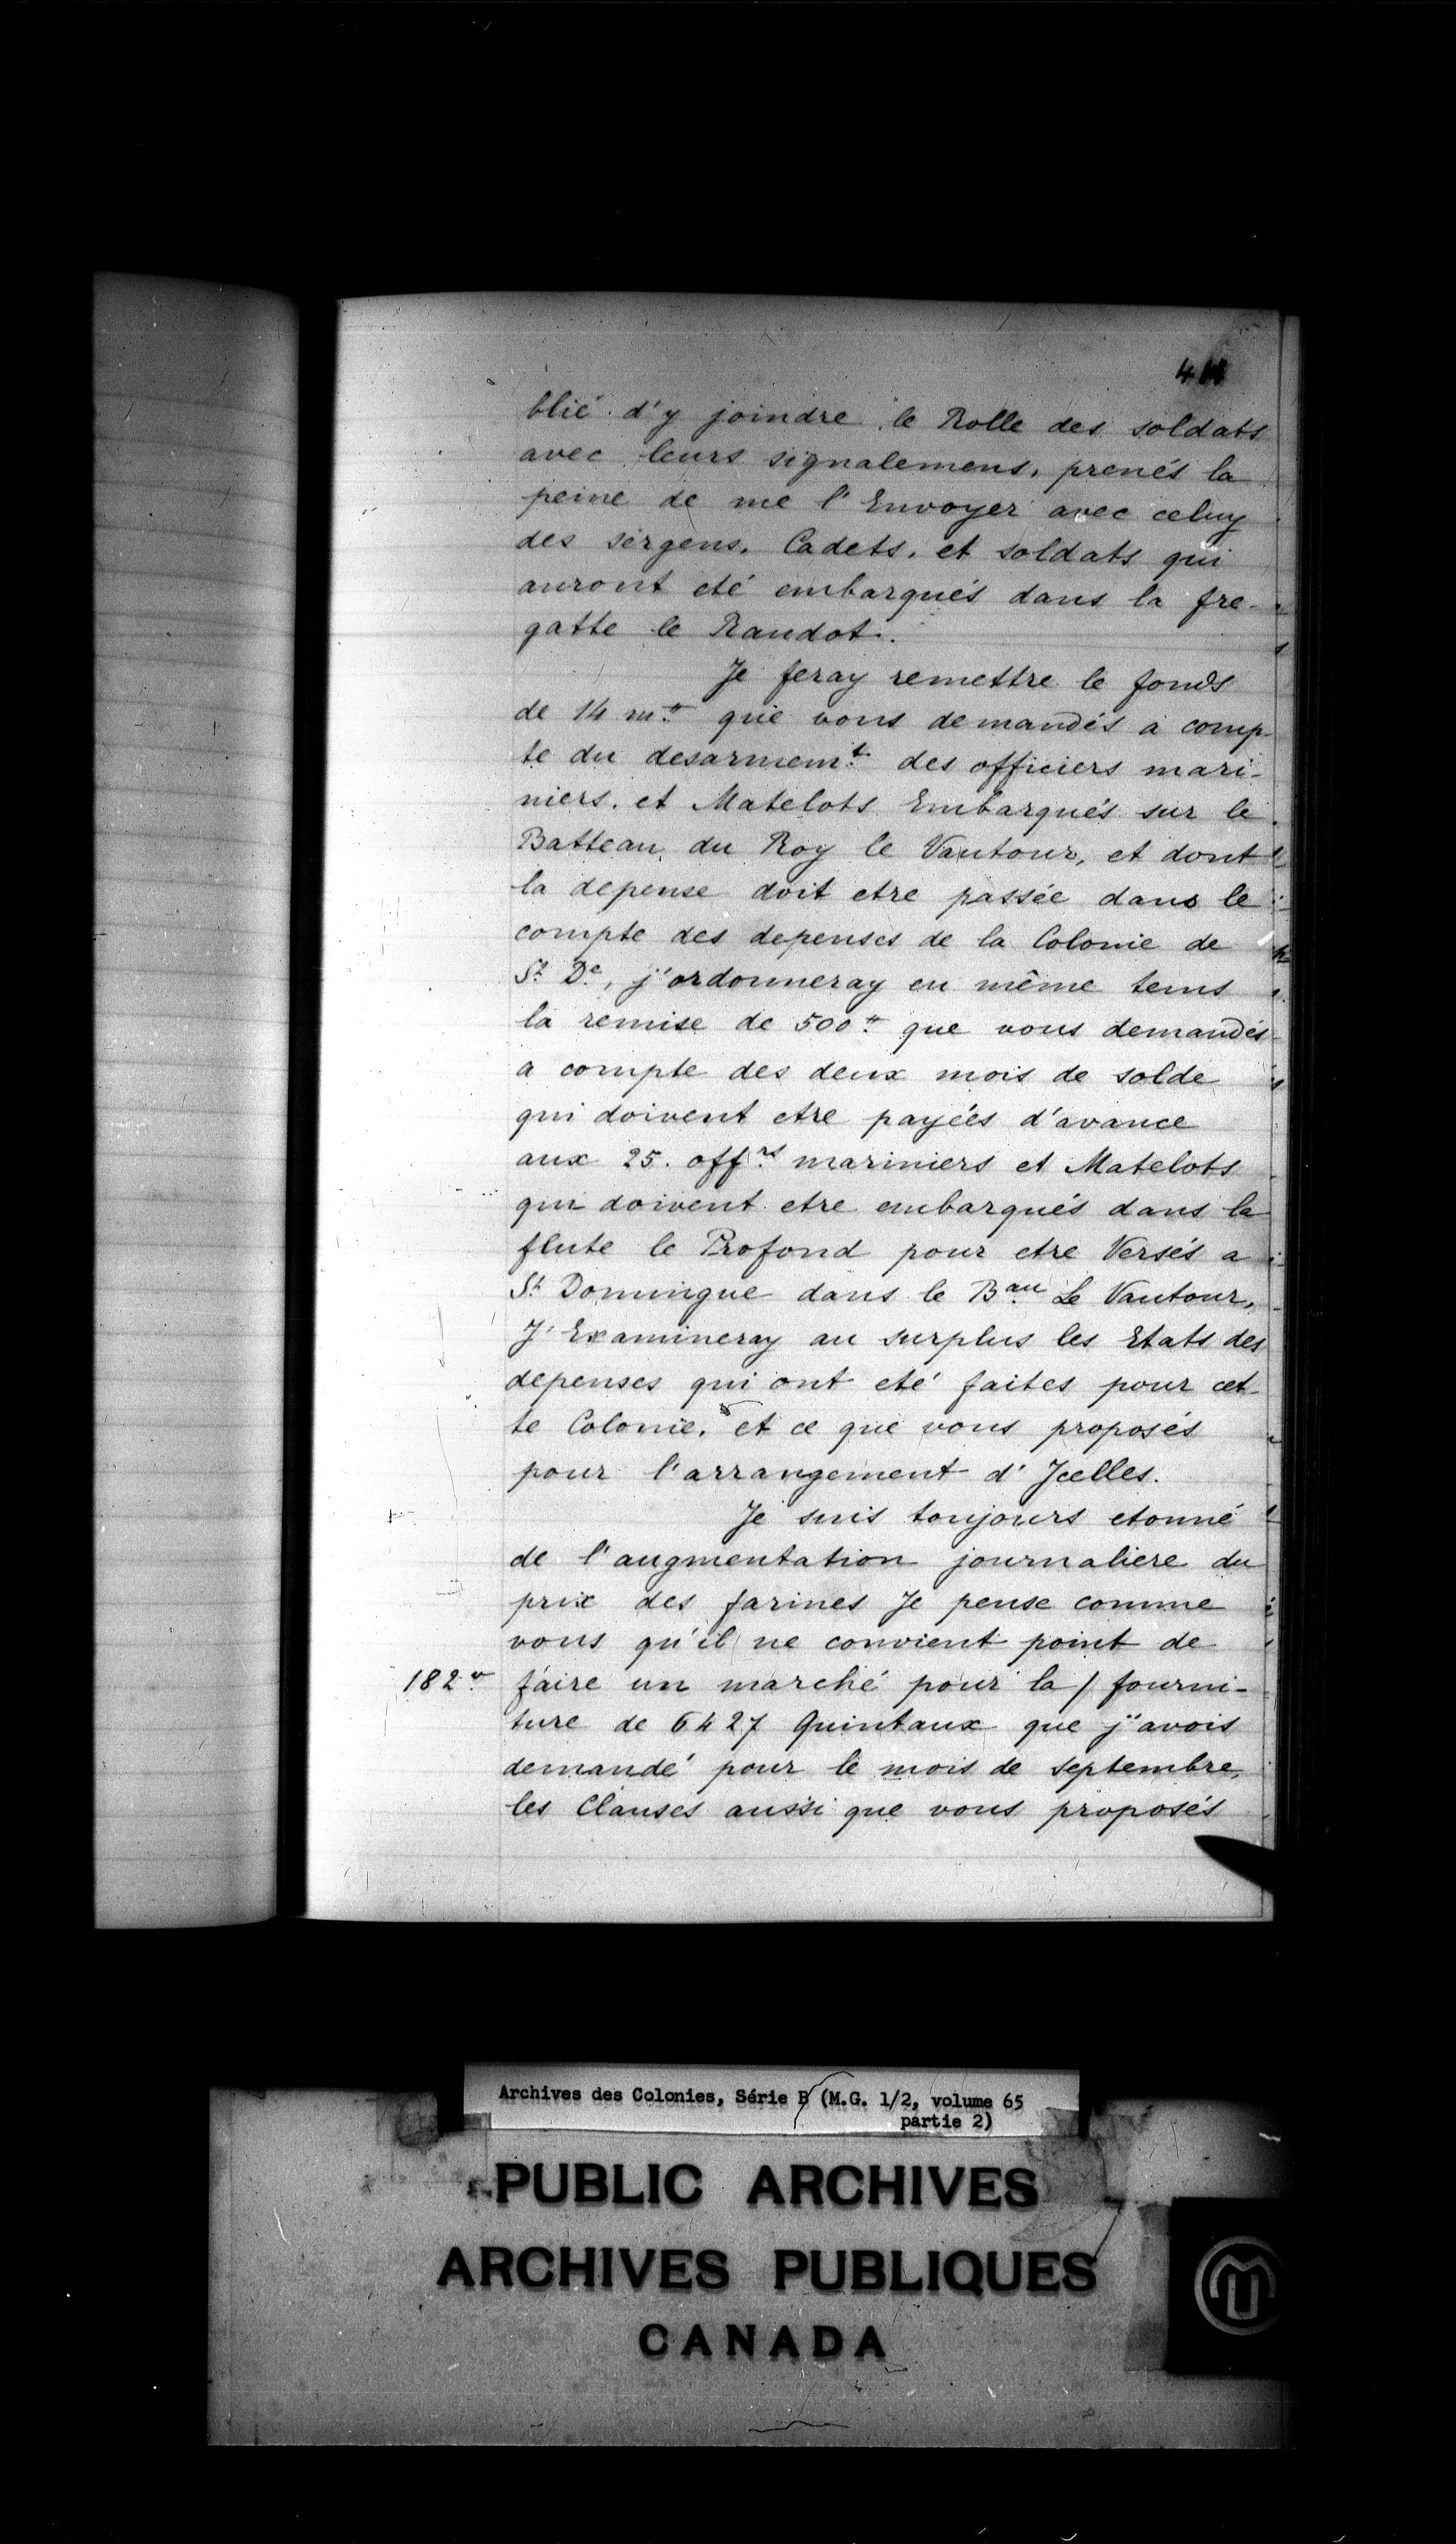 blié d'y joindre le Rolle des soldats
avec leurs signalemens, prenés la
peine de me l'Envoyer avec celuy
des sergens, Cadets, et soldats qui
auront eté embarqués dans la fre-
gatte le Raudot.
Je feray remettre le fonds
de 14 m.tt que vous demandés a comp-
te du desarmem.t des officiers mari-
niers, et Matelots Embarqués sur le
Batteau du Roy le Vautour, et dont
la depense doit etre passée dans le
compte des depenses de la Colonie de
St. De, j'ordonneray en même tems
la remise de 500.tt que vous demandés
a compte des deux mois de solde
qui doivent etre payées d'avance
aux 25. off.rs mariniers et Matelots
qui doivent etre embarqués dans la
flute le Profond pour etre Versés a
St Domingue dans le B.au Le Vautour,
J'Examineray au surplus les Etats des
depenses qui ont eté faites pour cet-
te Colonie, et ce que vous proposés
pour l'arrangement d'Jcelles.
Je suis toujours etonné
de l'augmentation journaliere du
prix des farines Je pense comme
vous qu'il ne convient point de
182 v faire un marché pour la / fourni-
ture de 6427 Quintaux que j'avois
demandé pour le mois de septembre,
les Clauses aussi que vous proposés
Archives des Colonies, Série B (M.G. 1/2, volume 65
partie 2)
PUBLIC ARCHIVES
ARCHIVES PUBLIQUES
CANADA